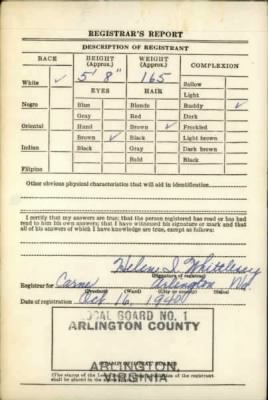 REGISTRAR'S REPORT
DESCRIPTION OF REGISTRANT
RACE HEIGHT (Approx.) WEIGHT (Approx.) COMPLEXION
White ✓ 5' 8" 165 Sallow
EYES HAIR Light
Negro Blue Blonde Ruddy ✓
Gray Red Dark
Oriental Hazel Brown ✓ Freckled
Brown ✓ Black Light brown
Indian Black Gray Dark brown
Bald Black
Filipino
Other obvious physical characteristics that will aid in identification
I certify that my answers are true; that the person registered has read or has had
read to him his own answers; that I have witnessed his signature or mark and that
all of his answers of which I have knowledge are true, except as follows:
Helen Whittlesey
(Signature of registrar)
Registrar for Arlington Va.
(Precinct) (Ward) (City or county) (State)
Date of registration Oct. 16, 1940
LOCAL BOARD NO. 1
ARLINGTON COUNTY
ARLINGTON,
VIRGINIA
(The stamp of the Local of the registrant
shall be placed in the